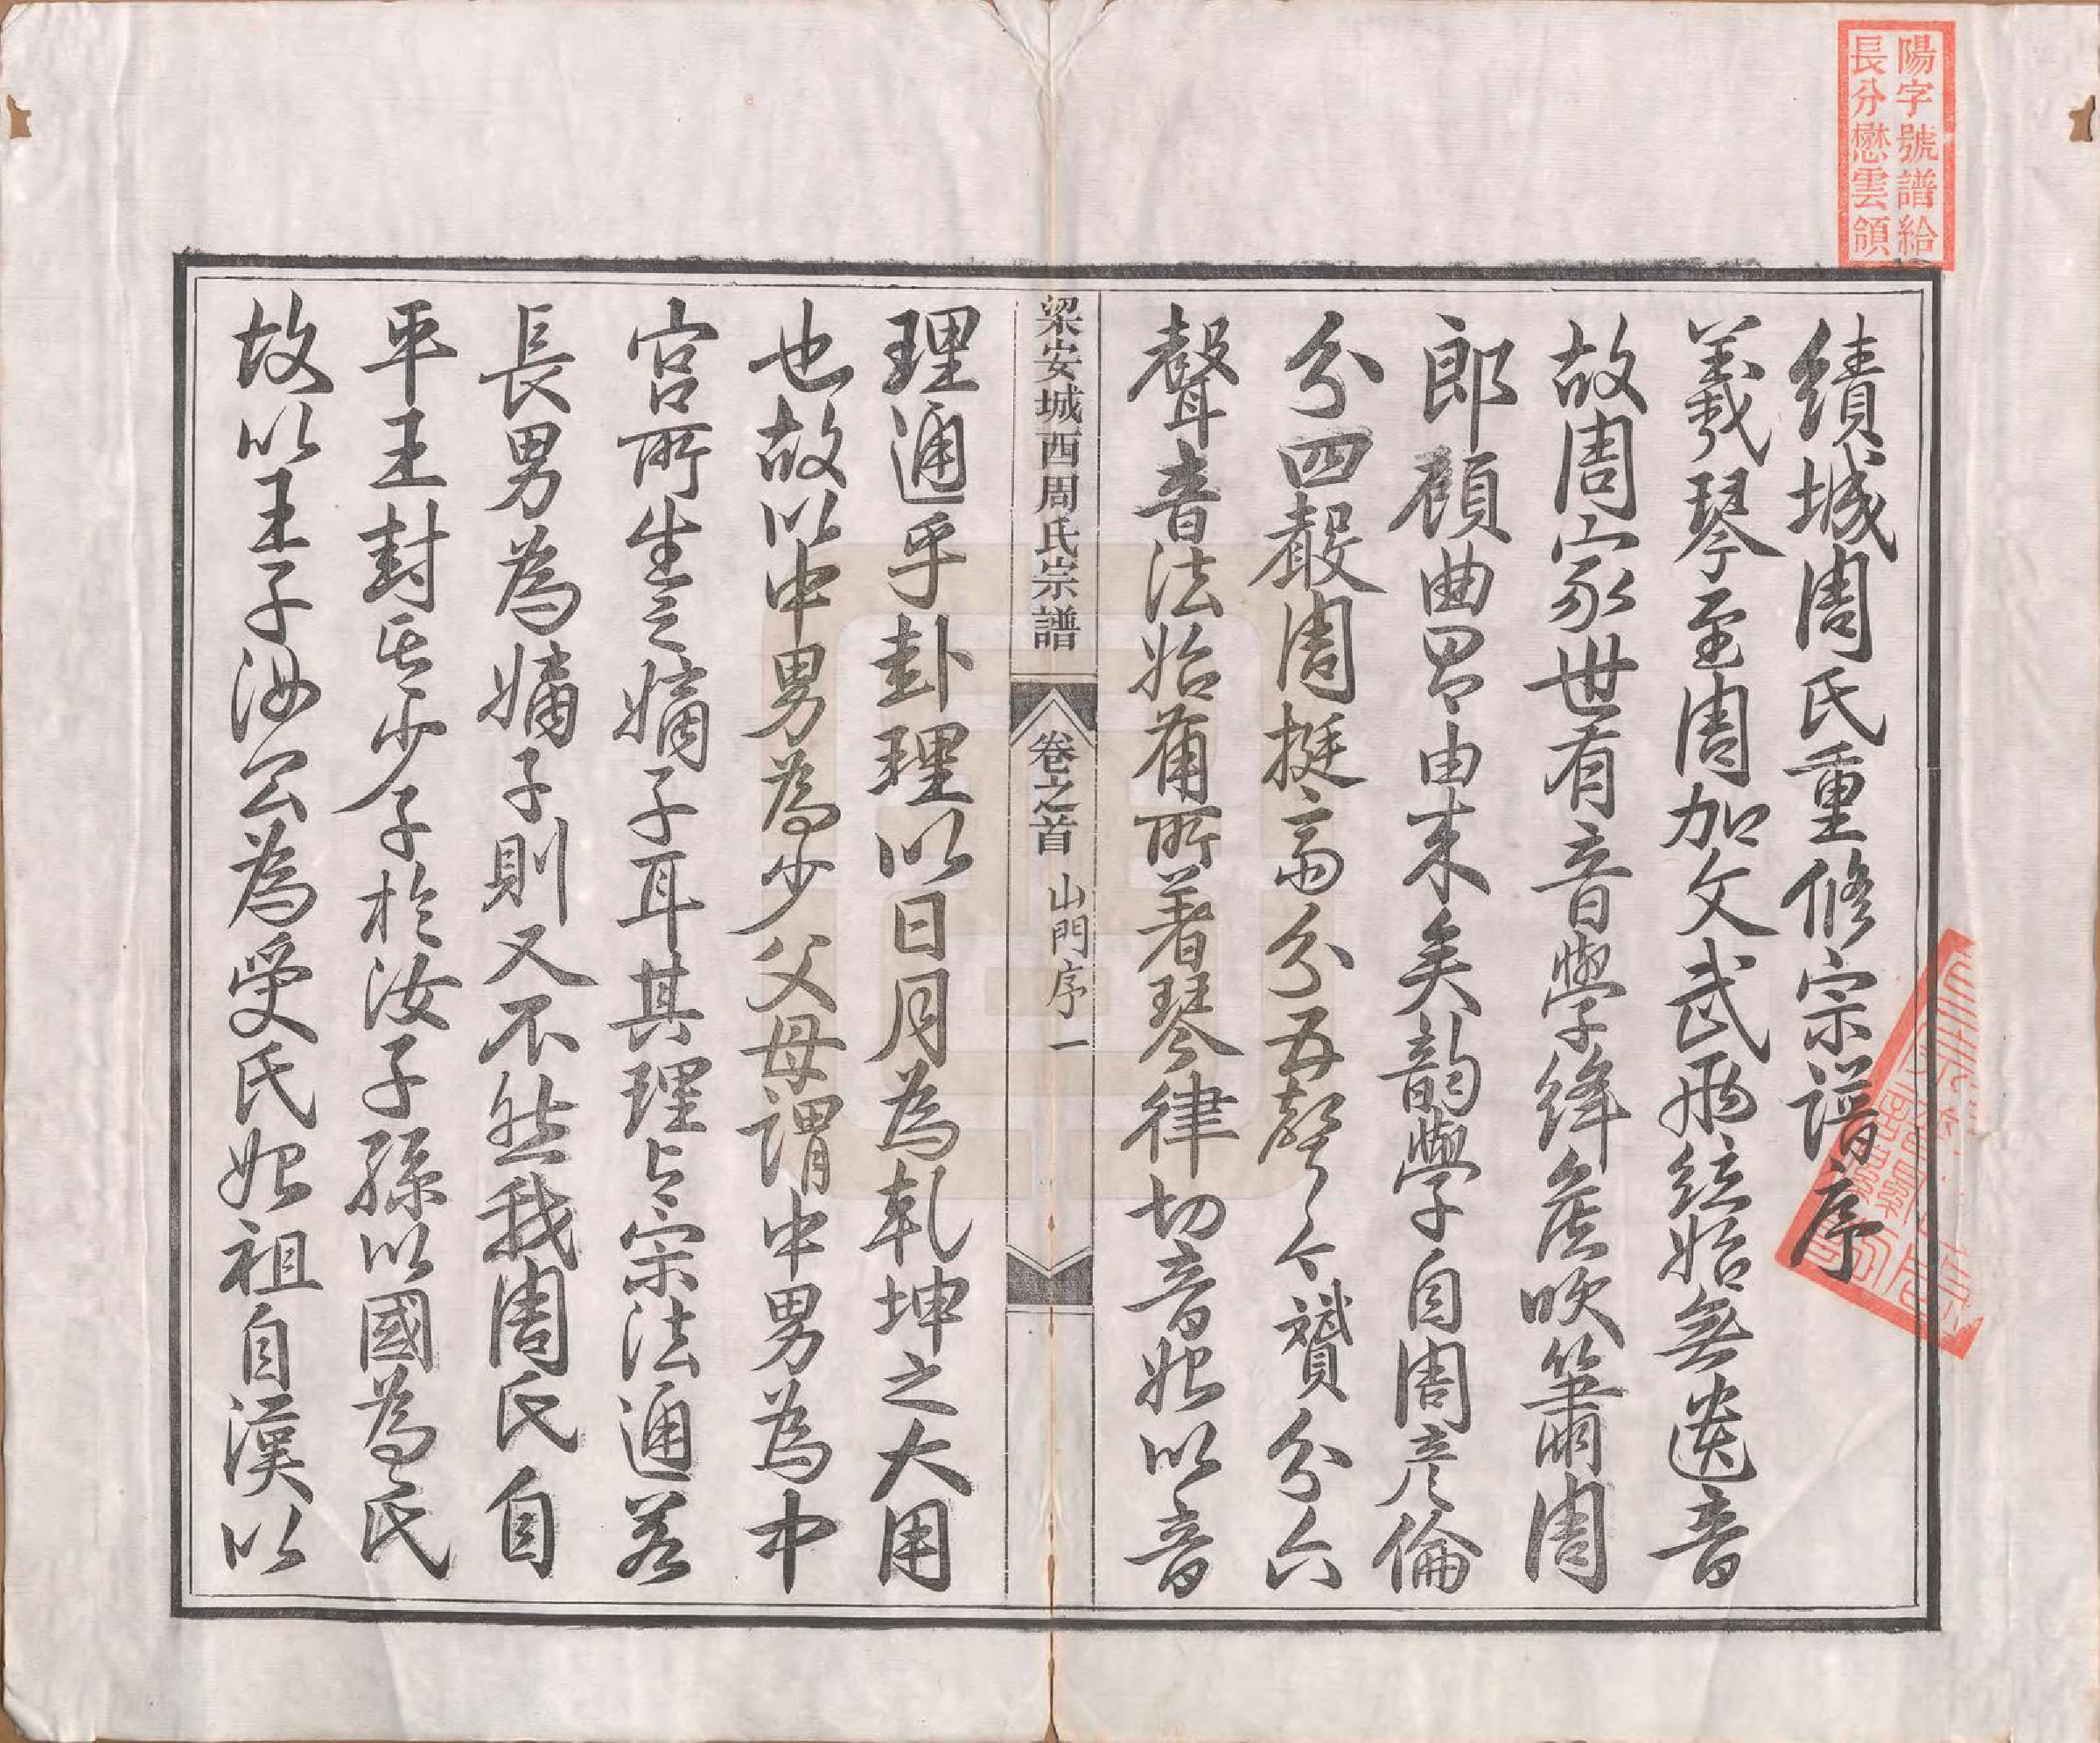 陽字號譜給
長分懋雲領
績城周氏重修宗譜序
羲琴至周加文武兩絃始無遺音
故周家世有音學絳侯吹簫周
郎顧曲所由来矣韵學自周彦倫
分四聲周挺齋分五聲今賛分六
聲音法始蕭所著琴律切音始以音
梁安城西周氏宗譜
卷之首
山門序
一
理通乎卦理以日月為乹坤之大用
也故以中男為少父母謂中男為中
宮所生之嫡子耳其理与宗法通若
長男為嫡子則又不然我周氏自
平王封其少子於汝子孫以國為氏
故以王子汝公為受氏始祖自漢以